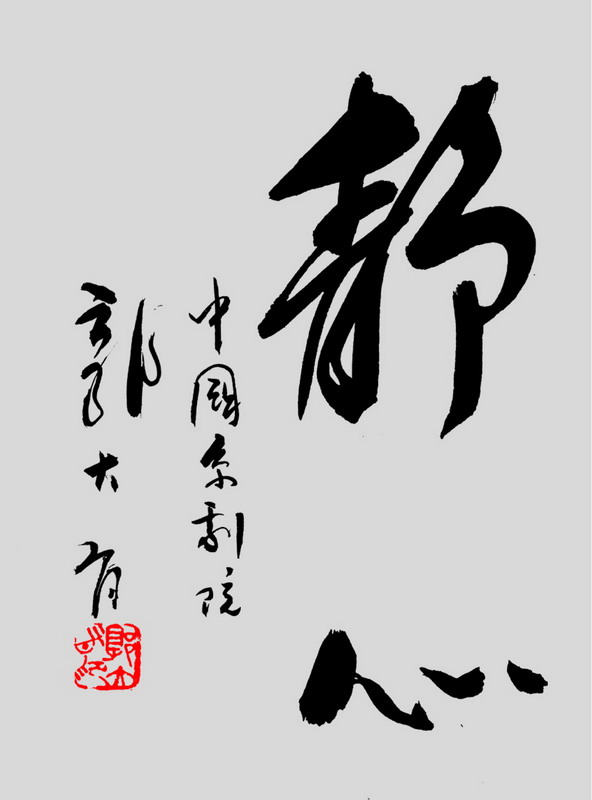 静心
中國京劇院
郭大有